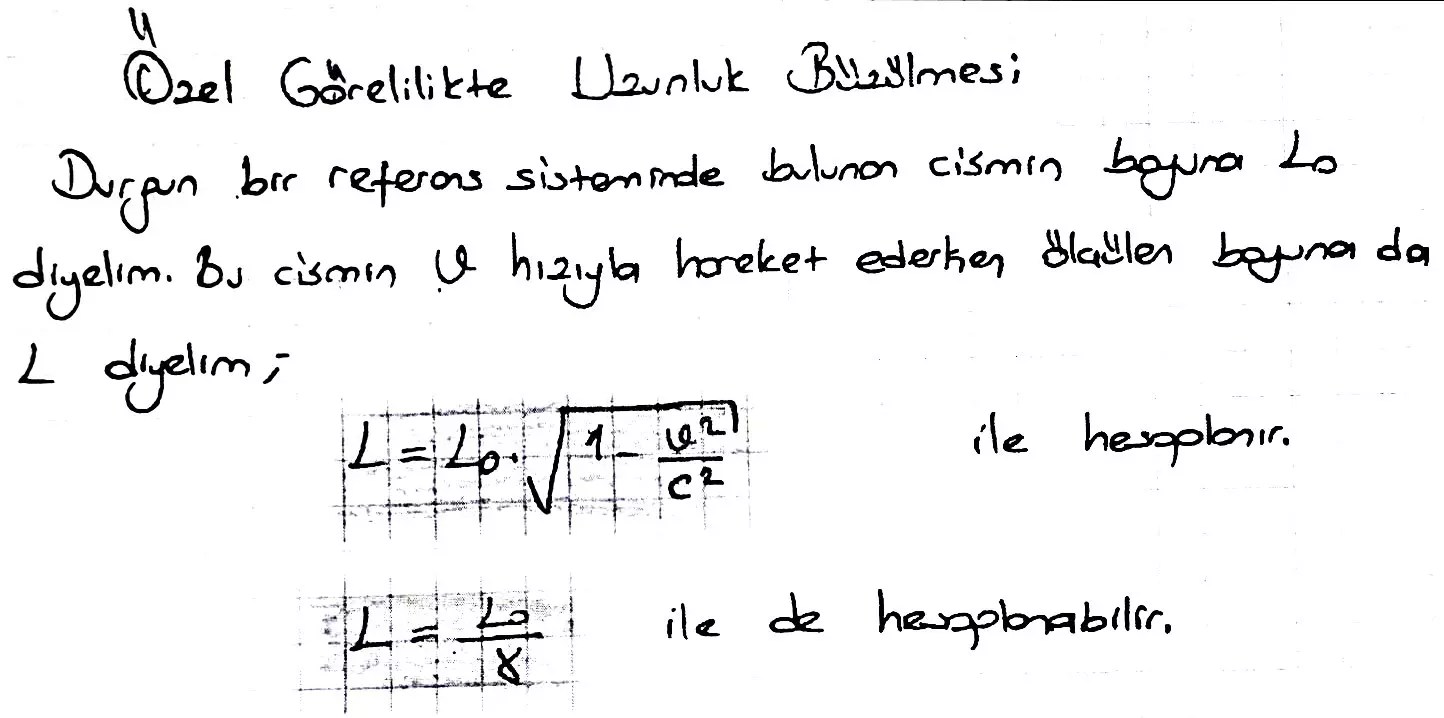 Özel Görelilikte Uzunluk Büzülmesi
Durgun bir referans sisteminde bulunan cismin boyuna L₀
diyelim. Bu cismin v hızıyla hareket ederken ölçülen boyuna da
L diyelim;
L = L₀ · √(1 - v²/c²) ile hesaplanır.
L = L₀/γ ile de hesaplanabilir.